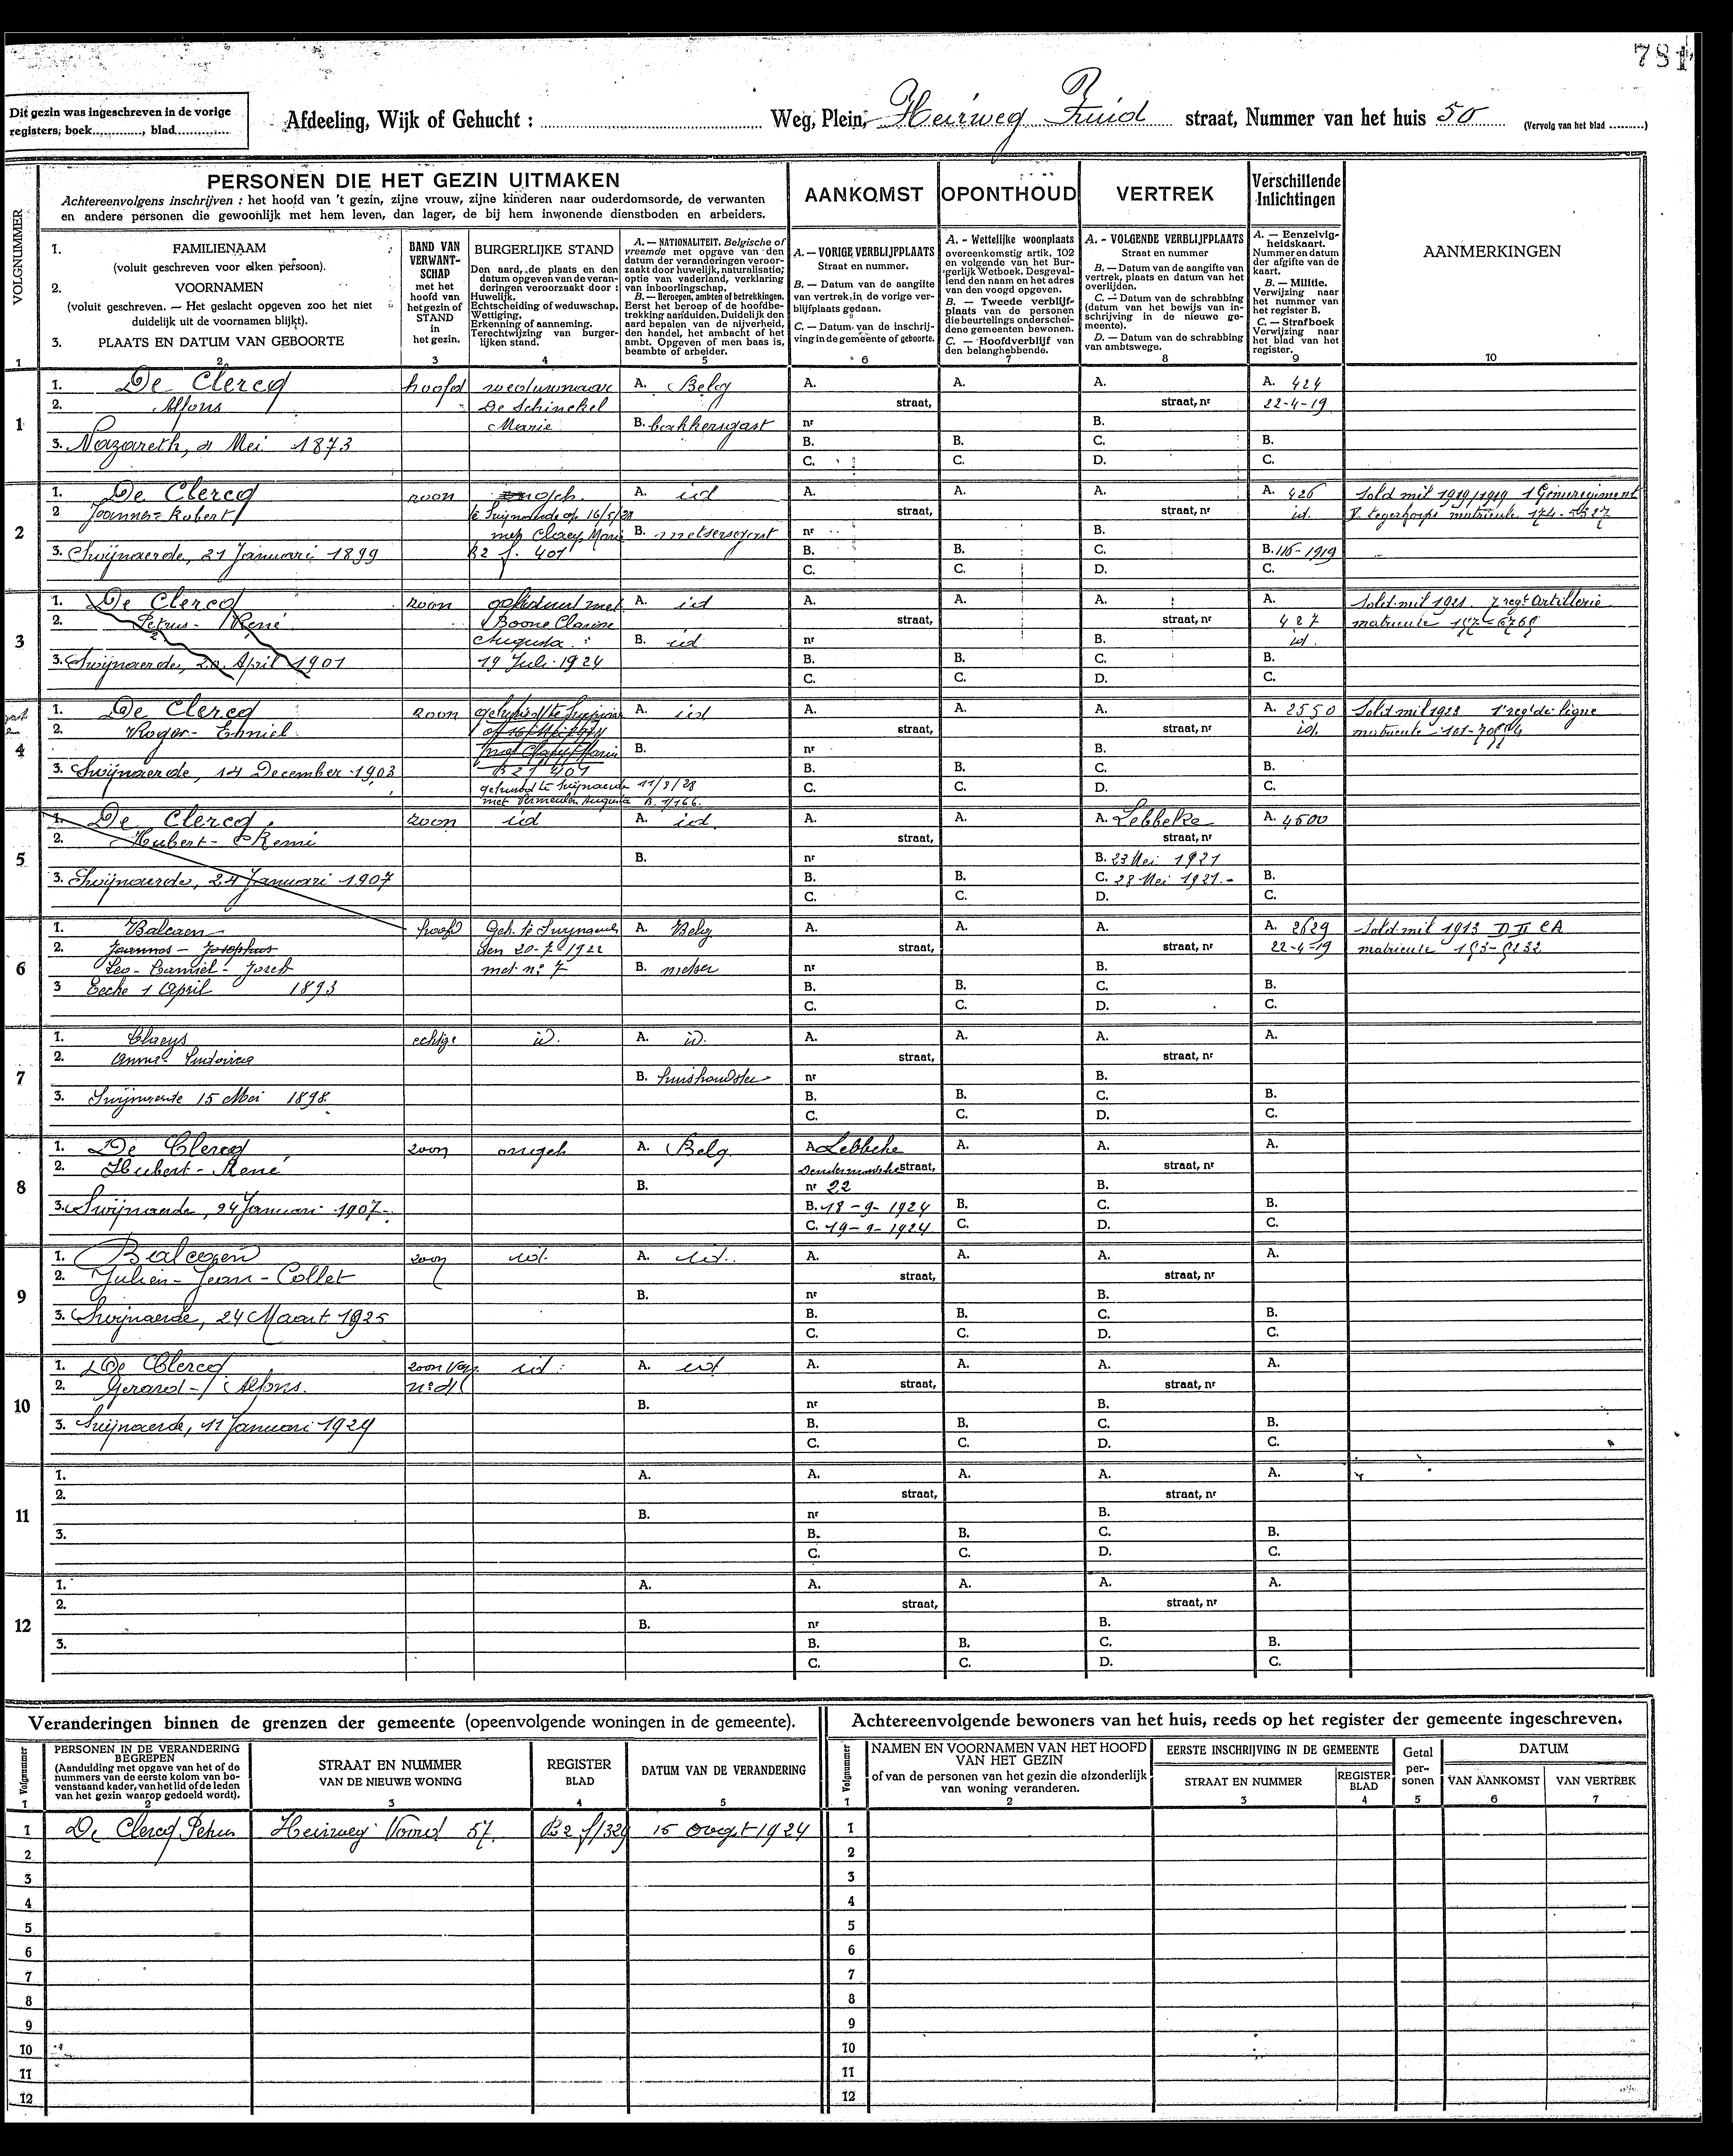 781
Dit gezin was ingeschreven in de vorige
registers, boek............, blad..............
Afdeeling, Wijk of Gehucht : ........................ Weg, Plein, Heirweg Zuid straat, Nummer van het huis 50 (Vervolg van het blad ..........)
VOLGNUMMER
PERSONEN DIE HET GEZIN UITMAKEN
Achtereenvolgens inschrijven : het hoofd van 't gezin, zijne vrouw, zijne kinderen naar ouderdomsorde, de verwanten
en andere personen die gewoonlijk met hem leven, dan lager, de bij hem inwonende dienstboden en arbeiders.
1. FAMILIENAAM
(voluit geschreven voor elken persoon).
2. VOORNAMEN
(voluit geschreven. — Het geslacht opgeven zoo het niet
duidelijk uit de voornamen blijkt).
3. PLAATS EN DATUM VAN GEBOORTE
BAND VAN
VERWANT-
SCHAP
met het
hoofd van
het gezin of
STAND
in
het gezin.
BURGERLIJKE STAND
Den aard, de plaats en den
datum opgeven van de veran-
deringen veroorzaakt door :
Huwelijk.
Echtscheiding of weduwschap.
Wettiging.
Erkenning of aanneming.
Terechtwijzing van burger-
lijken stand.
A. — NATIONALITEIT. Belgische of
vreemde met opgave van den
datum der veranderingen veroor-
zaakt door huwelijk, naturalisatie,
optie van vaderland, verklaring
van inboorlingschap.
B. — Beroepen, ambten of betrekkingen.
Eerst het beroep of de hoofdbe-
trekking aanduiden. Duidelijk den
aard bepalen van de nijverheid,
den handel, het ambacht of het
ambt. Opgeven of men baas is,
beambte of arbeider.
AANKOMST
A. — VORIGE VERBLIJFPLAATS
Straat en nummer.
B. — Datum van de aangifte
van vertrek in de vorige ver-
blijfplaats gedaan.
C. — Datum van de inschrij-
ving in de gemeente of geboorte.
OPONTHOUD
A. - Wettelijke woonplaats
overeenkomstig artik. 102
en volgende van het Bur-
gerlijk Wetboek. Desgeval-
lend den naam en het adres
van den voogd opgeven.
B. — Tweede verblijf-
plaats van de personen
die beurtelings onderschei-
dene gemeenten bewonen.
C. — Hoofdverblijf van
den belanghebbende.
VERTREK
A. - VOLGENDE VERBLIJFPLAATS
Straat en nummer
B. — Datum van de aangifte van
vertrek, plaats en datum van het
overlijden.
C. — Datum van de schrabbing
(datum van het bewijs van in-
schrijving in de nieuwe ge-
meente).
D. — Datum van de schrabbing
van ambtswege.
Verschillende
Inlichtingen
A. — Eenzelvig-
heidskaart.
Nummer en datum
der afgifte van de
kaart.
B. — Militie.
Verwijzing naar
het nummer van
het register B.
C. — Strafboek
Verwijzing naar
het blad van het
register.
AANMERKINGEN
1 2 3 4 5 6 7 8 9 10
1
1. De Clercq hoofd weduwnaar A. Belg A. A. A. A. 424
2. Alfons De Schinckel straat, straat, nr 22-4-19
Marie B. bakkersgast nr B.
3. Nazareth, 4 Mei 1873 B. B. C. B.
C. C. D. C.
2
1. De Clercq zoon A. id A. A. A. A. 426 Sold mil 1919/1919 1 Genieregiment
2 Joannes-Robert te Swijnaerde op 16/5/ straat, straat, nr id. matricule
met Claeys Marie B. metsersgast nr B.
3. Swijnaerde, 21 Januari 1899 B2 f. 401 B. B. C. B. 1919
C. C. D. C.
3
1. De Clercq zoon gehuwd met A. id A. A. A. A. Sold. mil 1921 7 regt Artillerie
2. Petrus-René Boone Clarisse straat, straat, nr 427 matricule
Augusta B. id nr B. id.
3. Swijnaerde, 20 April 1901 19 Juli 1924 B. B. C. B.
C. C. D. C.
4
1. De Clercq zoon gehuwd te Swijnaerde A. id A. A. A. A. 2550 Sold mil 1923 1 reg. de ligne
2. Roger-Emiel straat, straat, nr id. matricule
met Claeys Marie B. nr B.
3. Swijnaerde, 14 December 1903 B2 f 401 B. B. C. B.
gehuwd te Swijnaerde 11/8/28 C. C. D. C.
met Vermeulen Augusta B. 1/166.
5
1. De Clercq zoon id A. id A. A. A. Lebbeke A. 4500
2. Hubert-Remi straat, straat, nr
B. nr B. 23 Mei 1921
3. Swijnaerde, 24 Januari 1907 B. B. C. 28 Mei 1921.- B.
C. C. D. C.
6
1. Balcaen hoofd Geh. te Swijnaerde A. Belg A. A. A. A. 2629 Sold. mil 1913 D II CA
2. Joannes-Josephus den 20-7-1922 straat, straat, nr 22-4-19 matricule
Leo-Camiel-Jozef met n. 7 B. metser nr B.
3 Eecke 1 April 1893 B. B. C. B.
C. C. D. C.
7
1. Claeys echtge id. A. id. A. A. A. A.
2. Anna-Ludovica straat, straat, nr
B. huishoudster nr B.
3. Swijnaerde 15 Mei 1898. B. B. C. B.
C. C. D. C.
8
1. De Clercq zoon ongeh A. Belg. A. Lebbeke A. A. A.
2. Hubert-René Dendermondsche straat, straat, nr
B. nr 22 B.
3. Swijnaerde, 24 Januari 1907 B. 18-9-1924 B. C. B.
C. 19-9-1924 C. D. C.
9
1. Balcaen zoon id. A. id. A. A. A. A.
2. Julien-Jean-Collet straat, straat, nr
B. nr B.
3. Swijnaerde, 24 Maart 1925 B. B. C. B.
C. C. D. C.
10
1. De Clercq zoon van id. A. id A. A. A. A.
2. Gerard-Alfons. straat, straat, nr
B. nr B.
3. Swijnaerde, 11 Januari 1924 B. B. C. B.
C. C. D. C.
11
1. A. A. A. A. A.
2. straat, straat, nr
B. nr B.
3. B. B. C. B.
C. C. D. C.
12
1. A. A. A. A. A.
2. straat, straat, nr
B. nr B.
3. B. B. C. B.
C. C. D. C.
Veranderingen binnen de grenzen der gemeente (opeenvolgende woningen in de gemeente).
Volgnummer
PERSONEN IN DE VERANDERING
BEGREPEN
(Aanduiding met opgave van het of de
nummers van de eerste kolom van bo-
venstaand kader, van het lid of de leden
van het gezin waarop gedoeld wordt).
STRAAT EN NUMMER
VAN DE NIEUWE WONING
REGISTER
BLAD
DATUM VAN DE VERANDERING
1 2 3 4 5
1 De Clercq Petrus Heirweg Noord 57. B2 f/329 15 oogst 1924
2
3
4
5
6
7
8
9
10
11
12
Achtereenvolgende bewoners van het huis, reeds op het register der gemeente ingeschreven.
Volgnummer
NAMEN EN VOORNAMEN VAN HET HOOFD
VAN HET GEZIN
of van de personen van het gezin die afzonderlijk
van woning veranderen.
EERSTE INSCHRIJVING IN DE GEMEENTE
STRAAT EN NUMMER
REGISTER
BLAD
Getal
per-
sonen
DATUM
VAN AANKOMST
VAN VERTREK
1 2 3 4 5 6 7
1
2
3
4
5
6
7
8
9
10
11
12